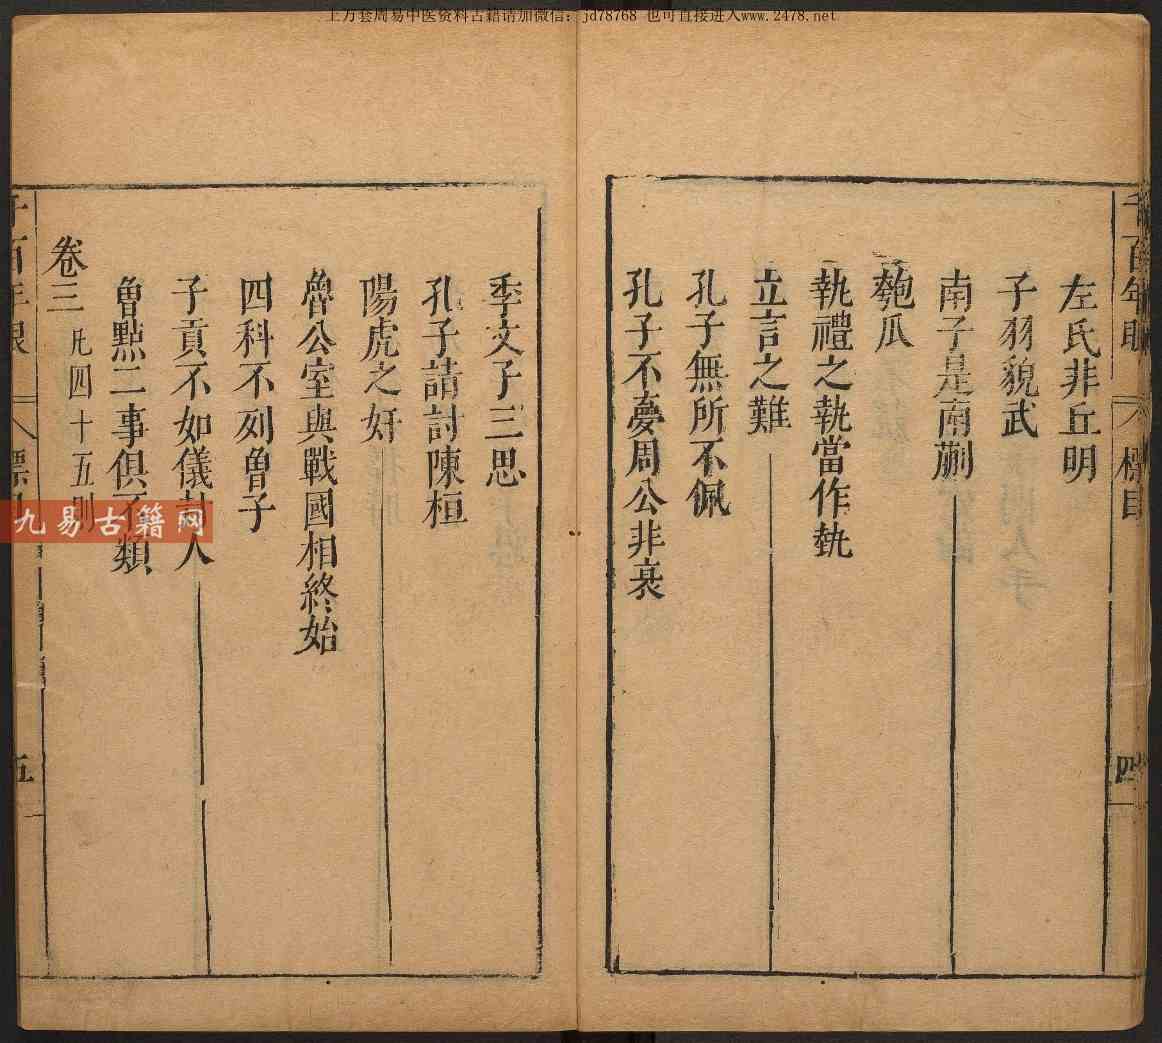 上万套周易中医资料古籍请加微信：jd78768 也可直接进入www.2478.net
千百年眼 標目 四
左氏非丘明
子羽貌武
南子是南蒯
匏瓜
執禮之執當作埶
立言之難
孔子無所不佩
孔子不夢周公非衰
季文子三思
孔子請討陳桓
陽虎之奸
魯公室與戰國相終始
四科不列曾子
子貢不如儀封人
曾點二事俱不類
卷三 凡四十五則
千百年眼 標目 五
九易古籍网